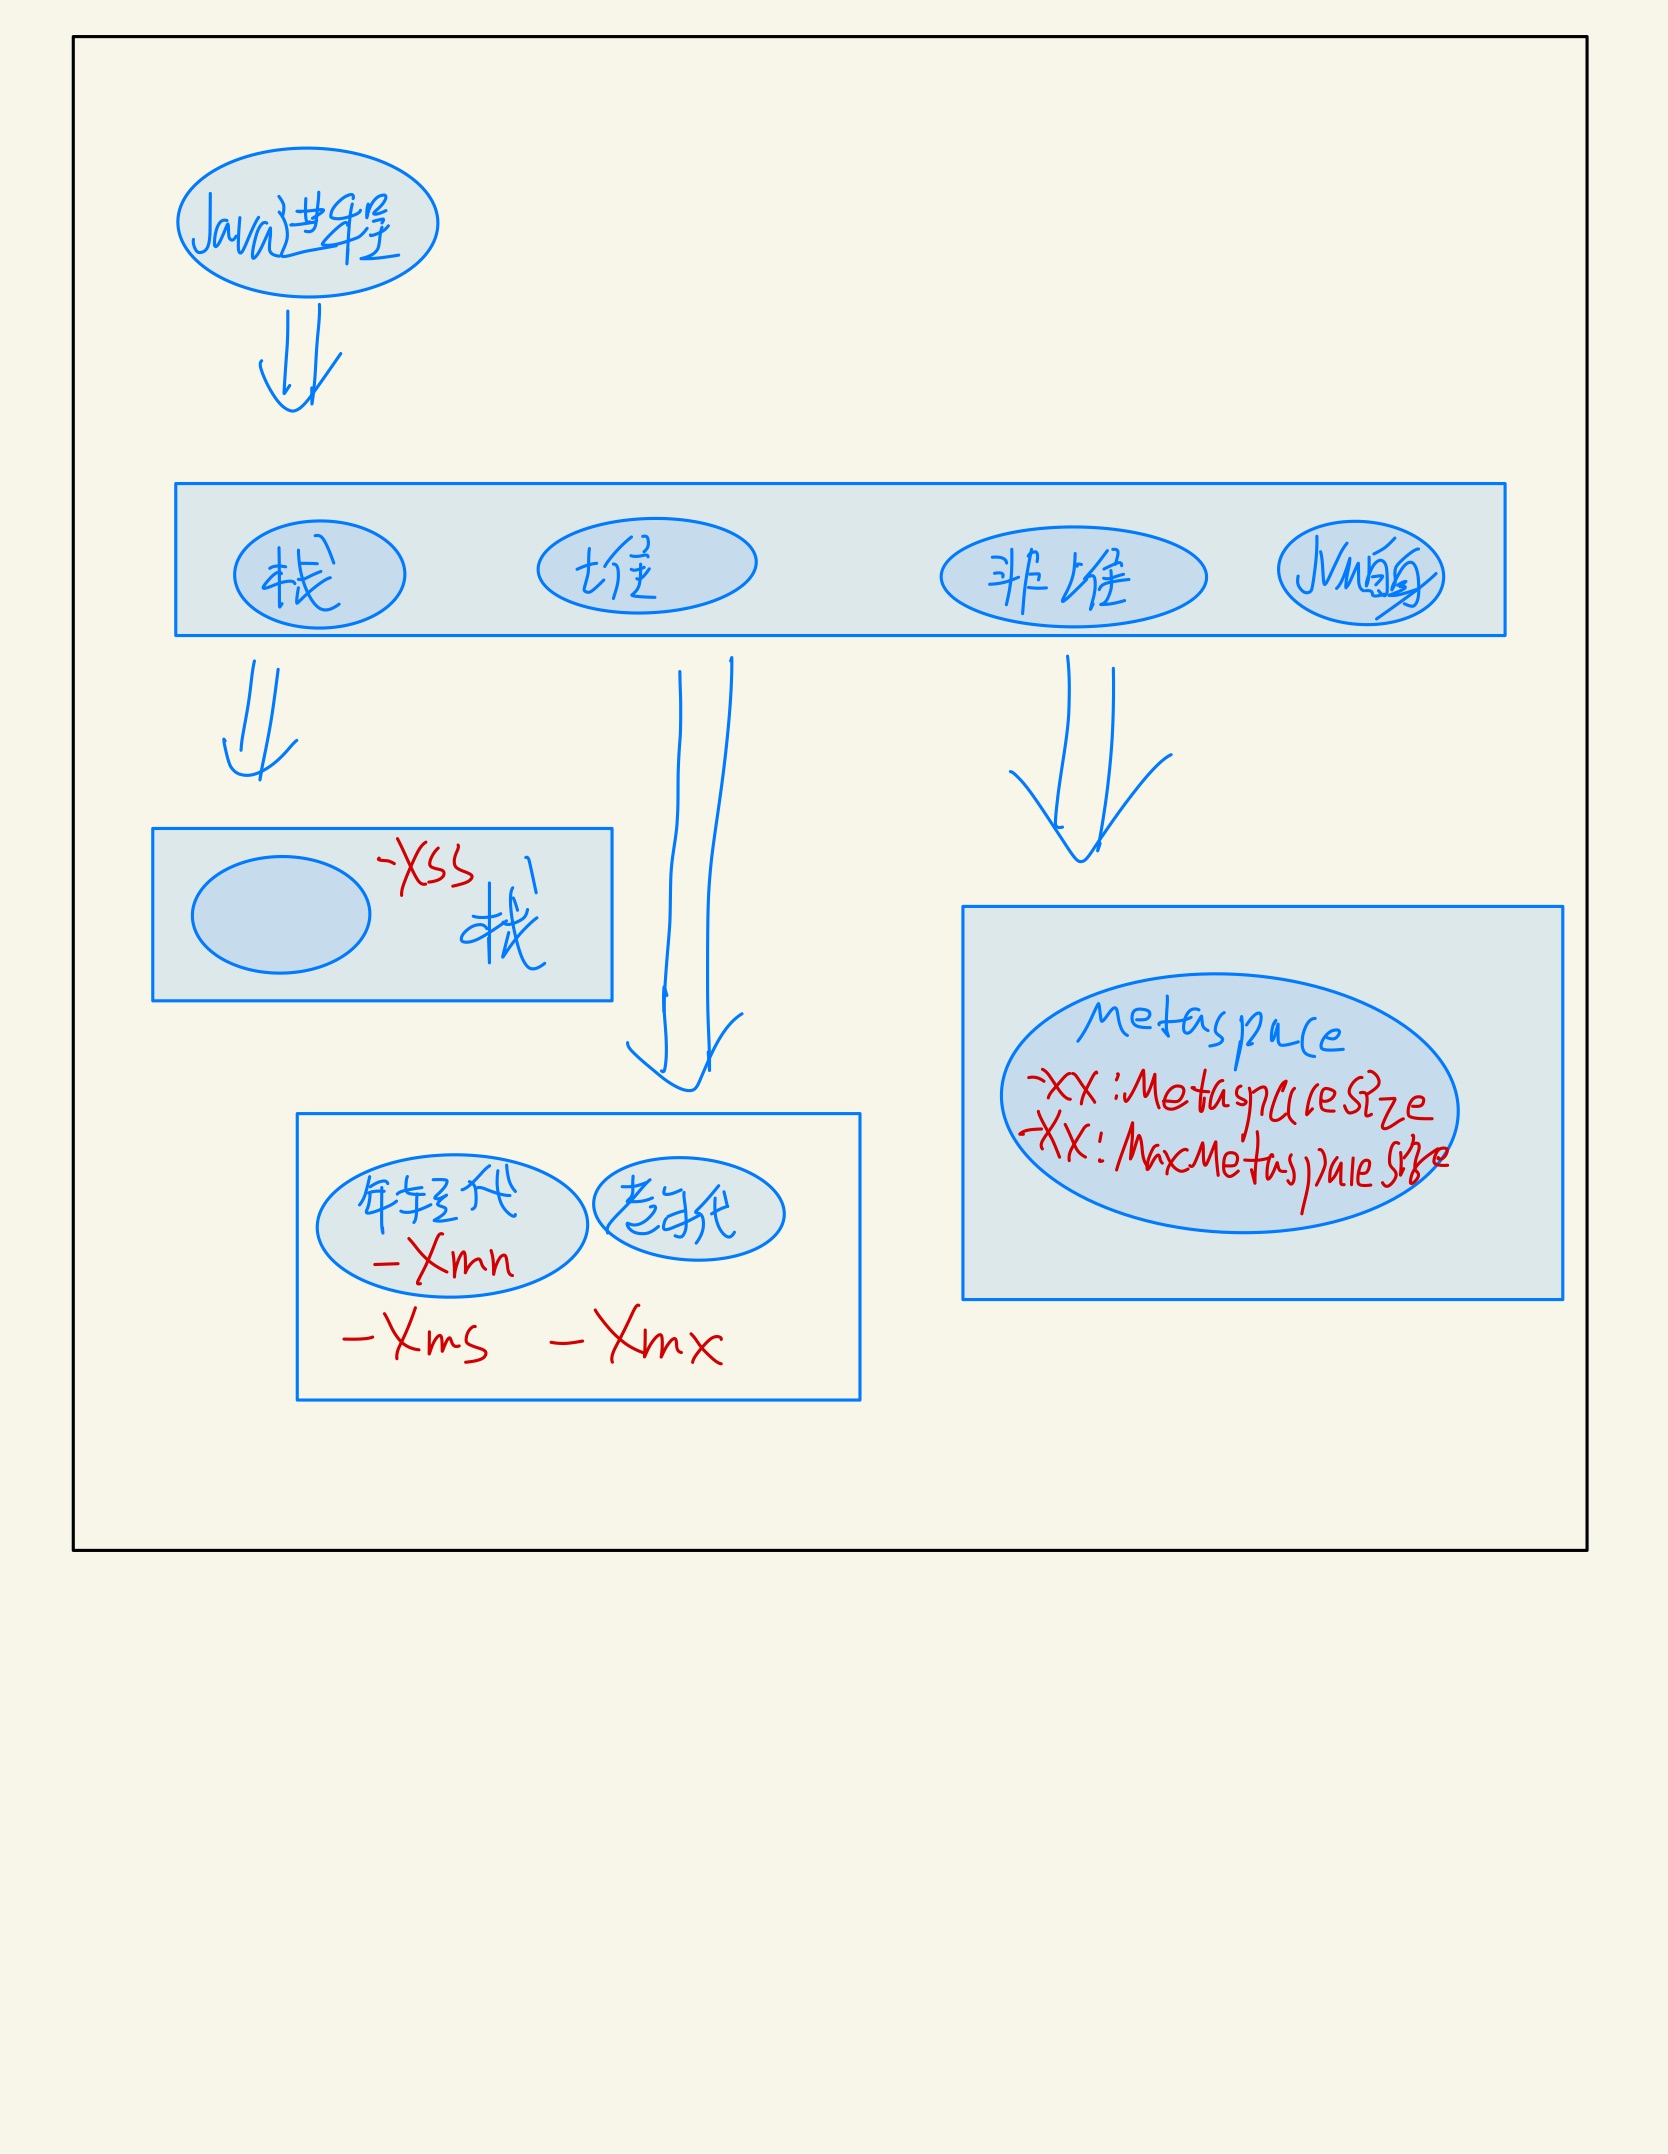 Java进程
栈
堆
非堆
JVM自身
-Xss
栈
年轻代
-Xmn
老年代
-Xms -Xmx
Metaspace
-XX:MetaspaceSize
-XX:MaxMetaspaceSize